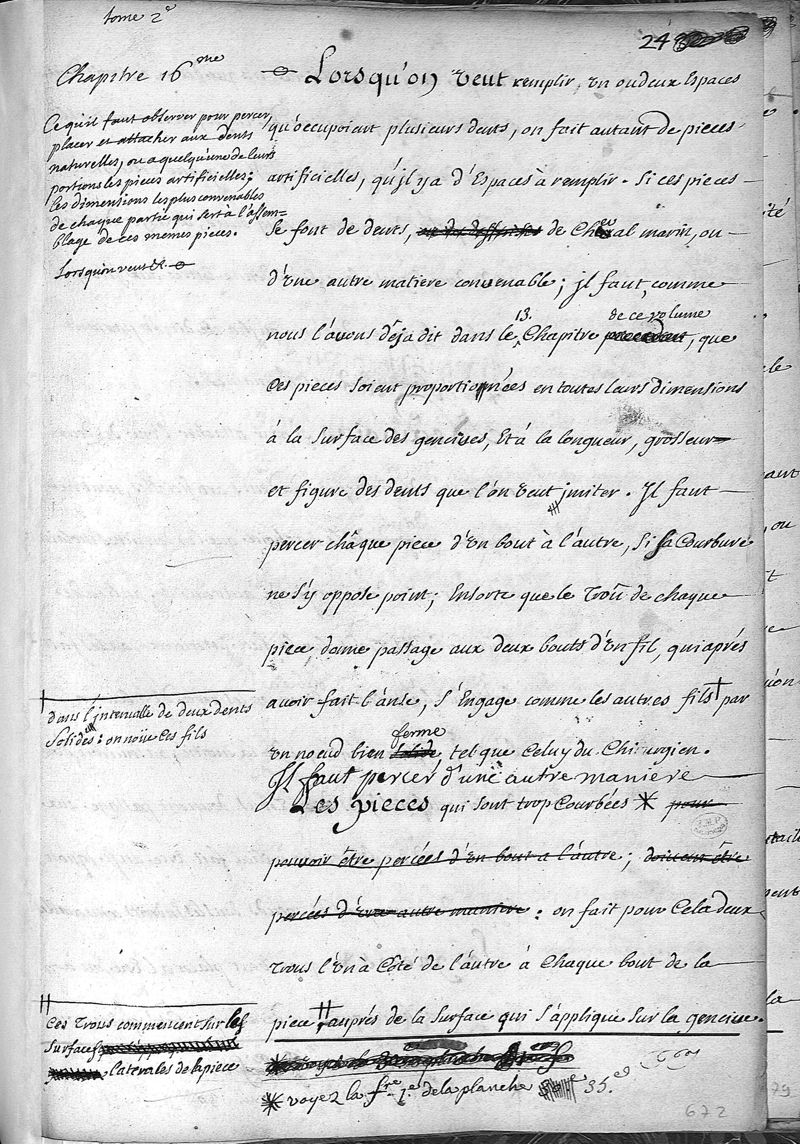 tome 2e
24
Chapitre 16me
Ce qu'il faut observer pour percer,
placer et attacher aux dents
naturelles, ou a quelqu'une de leurs
portions les pieces artificielles;
les dimensions les plus convenables
de chaque partie qui sert a l'assem-
blage de ces memes pieces.
Lorsqu'on veut &c.
Lorsqu'on veut remplir, un ou deux Espaces
qu'occupoient plusieurs dents, on fait autant de pieces
artificielles, qu'jl y a d'Espaces à remplir. Si ces pieces
se font de dents, de Cheval marin, ou
d'une autre matiere convenable; jl faut, comme
nous l'avons dêja dit dans le 13. Chapitre de ce volume, que
ces pieces soient proportionnées en toutes leurs dimensions
à la surface des gencives, Et à la longueur, grosseur
et figure des dents que l'on veut jmiter. Jl faut
percer châque piece d'un bout à l'autre, si sa Courbure
ne s'y oppose point; Ensorte que le Trou de chaque
piece, donne passage aux deux bouts d'un fil, qui aprés
avoir fait l'anse, s'Engage comme les autres fils † par
dans l'intervalle de deux dents
solides: on noüe ces fils
un noeud bien ferme solide tel que Celuy du Chirurgien.
Jl faut percer d'une autre maniere
Les pieces qui sont trop Courbées * pour
pouvoir être percées d'un bout a l'autre; doivent être
percées d'une autre maniere: on fait pour Cela deux
Trous l'un à Côté de l'autre à Chaque bout de la
piece, auprés de la surface qui s'applique sur la gencive.
Ces Trous commencent sur les
surfaces
laterales de la piece
* voyez la fre 1. es de la planche 35.e
672